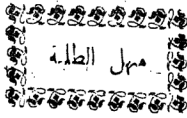 منهل الطلبة